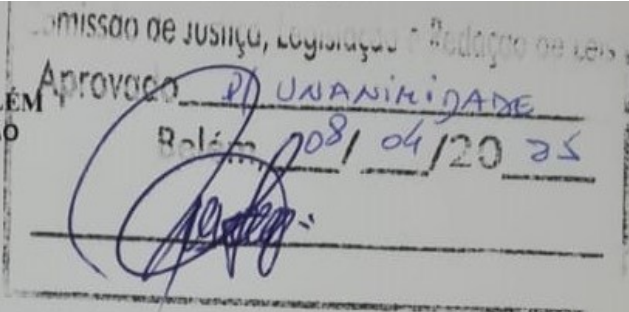 omissão de Justiça, Legislação e Redação de Leis
Aprovado P/ UNANIMIDADE
LÉM
O
Belém, 08/04/2025